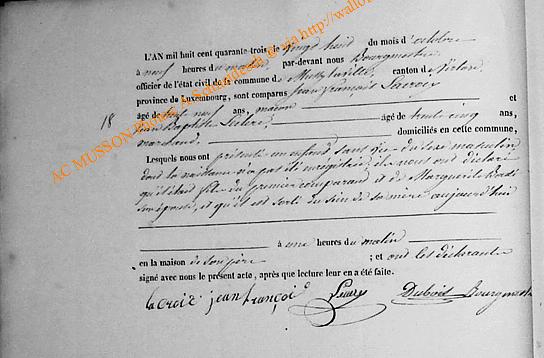 L'AN mil huit cent quarante-trois, le vingt huit du mois d'octobre
à neuf heures du matin, par-devant nous Bourgmestre,
officier de l'état civil de la commune de Mussy la ville, canton de Virton,
province de Luxembourg, sont comparus Jean François Lacroix
âgé de neuf ans, maçon et
18
Jean Baptiste Leclere, âgé de trente cinq ans,
marchand, domiciliés en cette commune,
Lesquels nous ont présenté un enfant sans vie du sexe masculin
dont la naissance n'a pas été enregistrée, ils nous ont déclaré
qu'il était fils du premier comparant et de Marguerite
son épouse, et qu'il est sorti du sein de sa mère aujourd'hui
à une heures du matin
en la maison de son père ; et ont les déclarants
signé avec nous le présent acte, après que lecture leur en a été faite.
lacroix jean françoi Dubois Bourgmest
AC MUSSON Photos A Schneider © via http://wallo